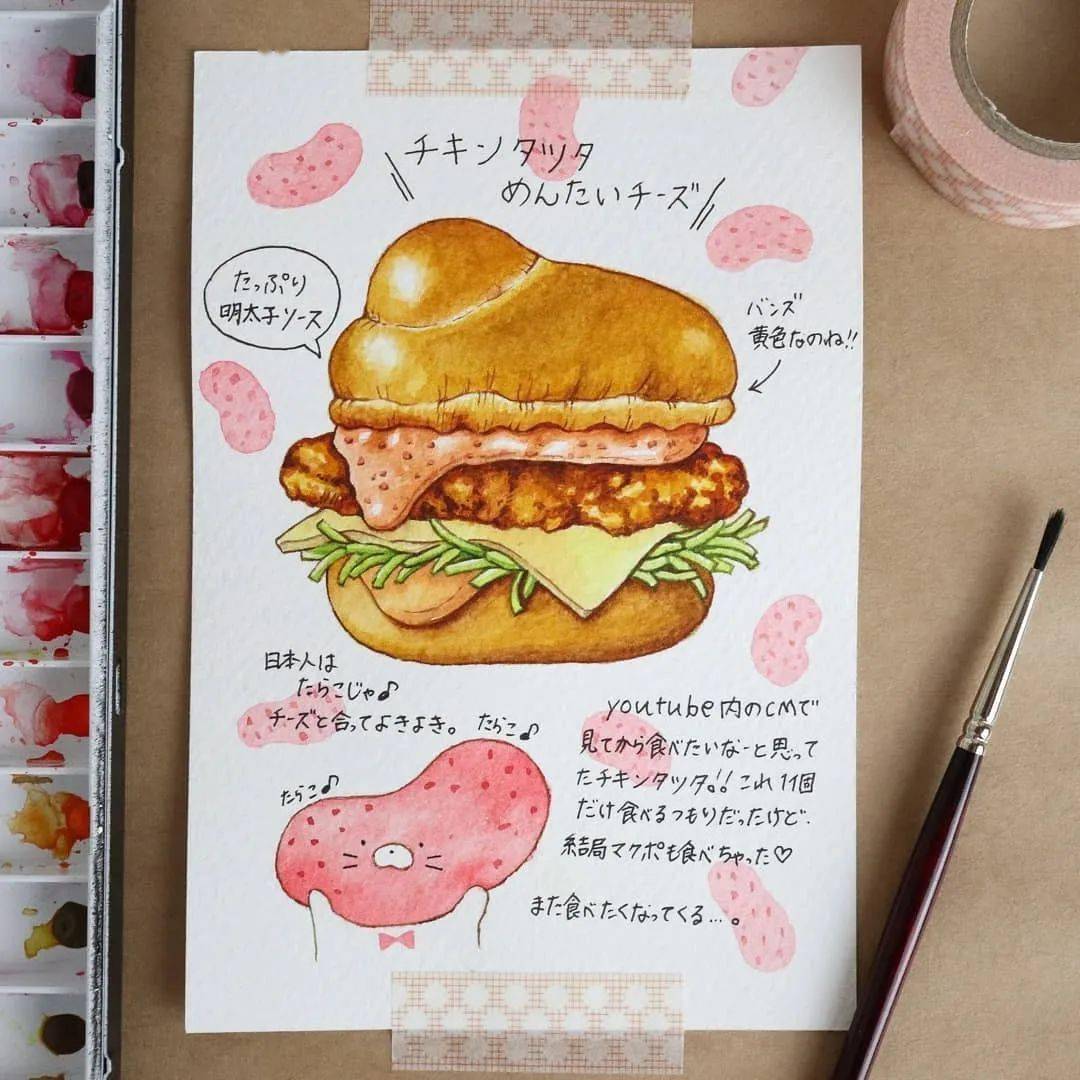 チキンタツタ
めんたいチーズ
たっぷり
明太子ソース
バンズ
黄色なのね!!
日本人は
たらこじゃ♪
チーズと合ってよきよき。
たらこ♪
たらこ♪
youtube内のCMで
見てから食べたいなーと思って
たチキンタツタ!! これ1個
だけ食べるつもりだったけど、
結局マクポも食べちゃった♡
また食べたくなってくる…。